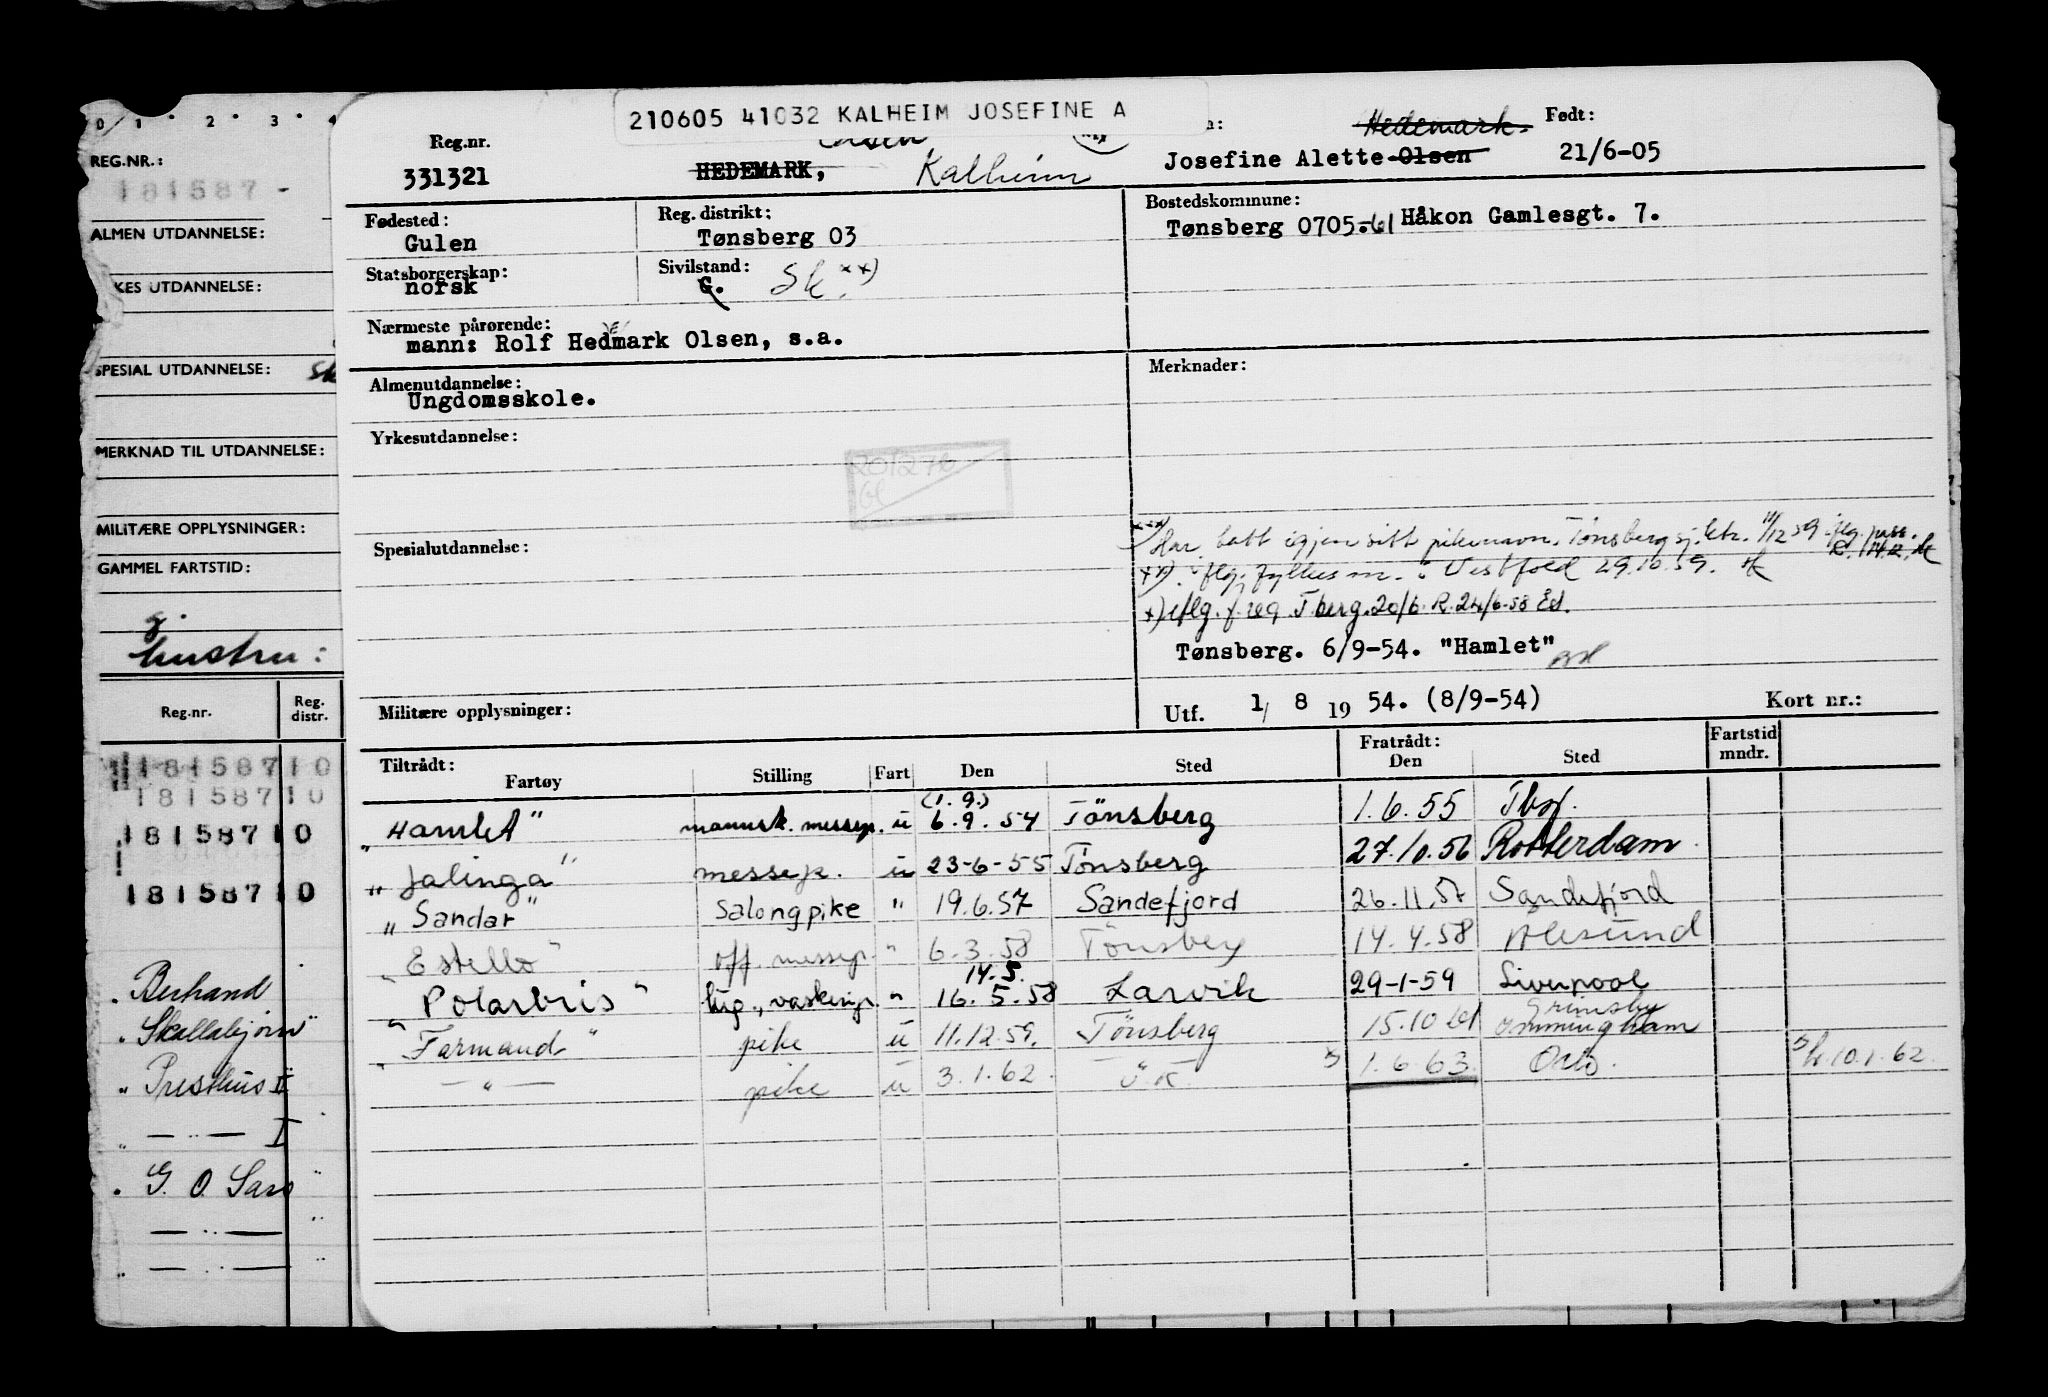 0 1 2 3 4
REG.NR.:
181587 -
ALMEN UTDANNELSE:
KES UTDANNELSE:
SPESIAL UTDANNELSE:
MERKNAD TIL UTDANNELSE:
MILITÆRE OPPLYSNINGER:
GAMMEL FARTSTID:
Reg.nr. Reg. distr.
181587 10
181587 10
181587 10
181587 10
Berhand
"Skallabjørn"
"Presthus II
" — " — I
G. O. Sars
— " —
— " —
210605 41032 KALHEIM JOSEFINE A
Reg.nr. Hedemark Født:
331321 HEDEMARK, Kalheim Josefine Alette Olsen 21/6-05
Fødested: Reg. distrikt: Bostedskommune:
Gulen Tønsberg 03 Tønsberg 0705-61 Håkon Gamlesgt. 7.
Statsborgerskap: Sivilstand:
norsk G. Sk. xx)
Nærmeste pårørende:
mann: Rolf Hedmark Olsen, s.a.
Almenutdannelse: Merknader:
Ungdomsskole.
Yrkesutdannelse:
201276
Spesialutdannelse:
xxx) Har tatt igjen sitt pikenavn. Tønsberg sj. ktr. 11/12 59 iflg. pass.
xx) iflg. fyllesm. i Vestfold 29.10.59.
x) iflg. f. reg. T.berg. 20/6 R. 24/6-58
Tønsberg. 6/9-54. "Hamlet"
Militære opplysninger: Utf. 1/ 8 19 54. (8/9-54) Kort nr.:
Tiltrådt: Fratrådt: Fartstid mndr.
Fartøy Stilling Fart Den Sted Den Sted
(1.9.)
"Hamlet" mannsk. messep. u 6.9.54 Tönsberg 1.6.55 Tbg.
"Jalinga" messep. u 23-6-55 Tönsberg 27.10.56 Rotterdam
"Sandar" Salongpike " 19.6.57 Sandefjord 26.11.57 Sandefjord
"Estello" off. messep. " 6.3.58 Tönsberg 14.4.58 Ålesund
14.5.
"Polarbris" " 16.5.58 Larvik 29-1-59 Liverpool
Grimsby
"Farmand" pike u 11.12.59. Tönsberg 15.10.61 Immingham
— " — pike u 3.1.62. 1.6.63. Oslo. 10.1.62.